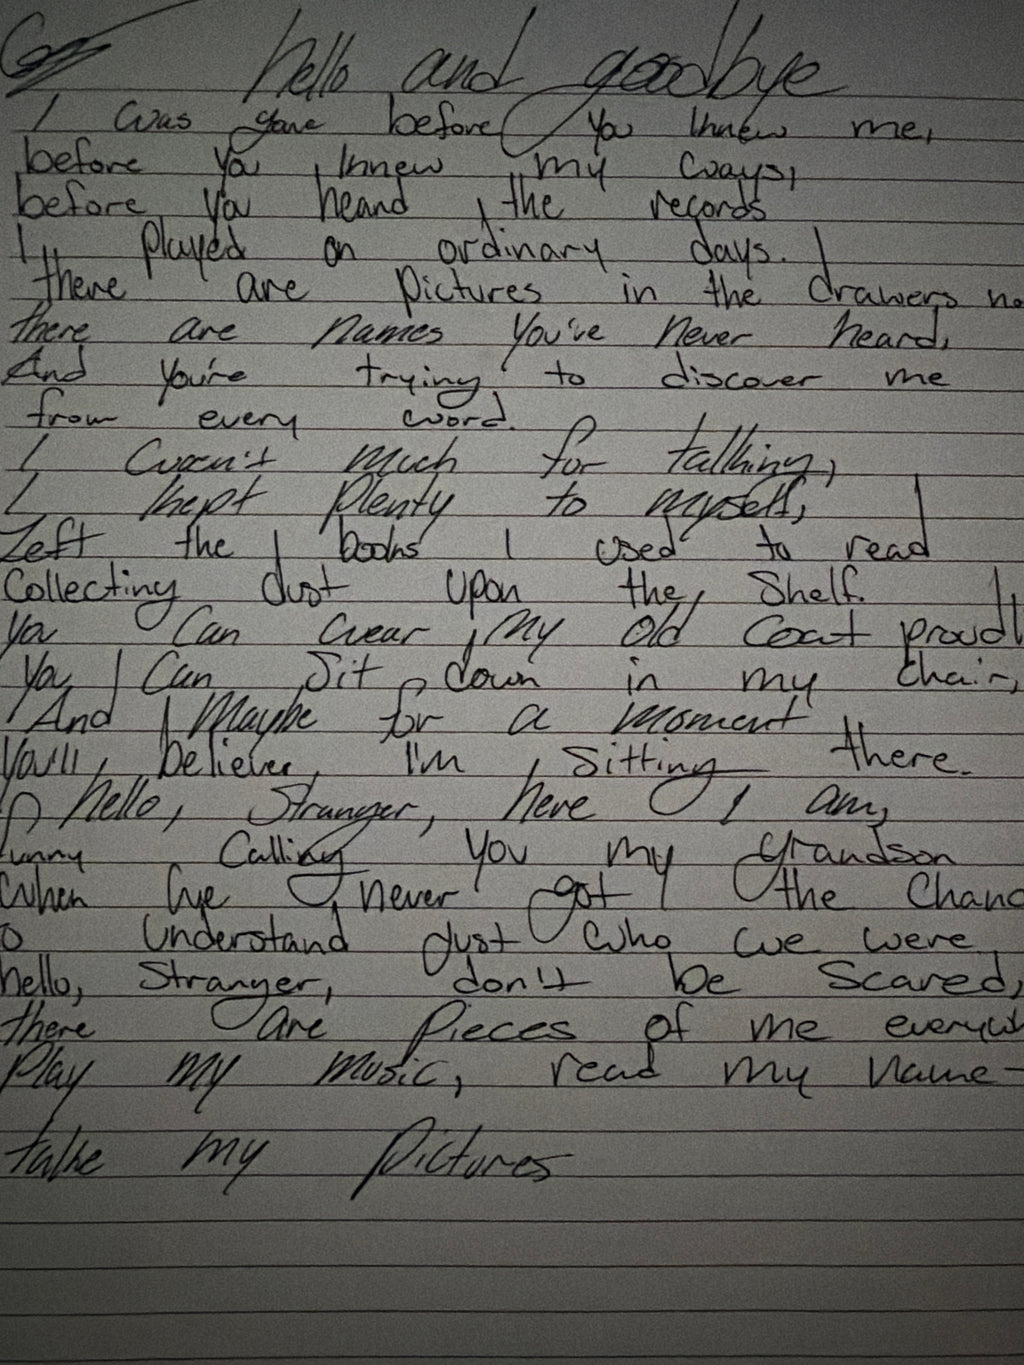 hello and goodbye
I was gone before you knew me,
before you knew my ways,
before you heard the records
I played on ordinary days.
there are pictures in the drawers
there are names you've never heard,
And you're trying to discover me
from every word.
I wasn't much for talking,
I kept plenty to myself,
Left the books I used to read
Collecting dust upon the shelf.
you can wear my old coat proudl
you can sit down in my chair,
And maybe for a moment
You'll believe I'm sitting there.
hello, Stranger, here I am,
funny calling you my grandson
when we never got the chanc
o understand just who we were
hello, Stranger, don't be scared,
there are pieces of me everywh
Play my music, read my name-
take my pictures